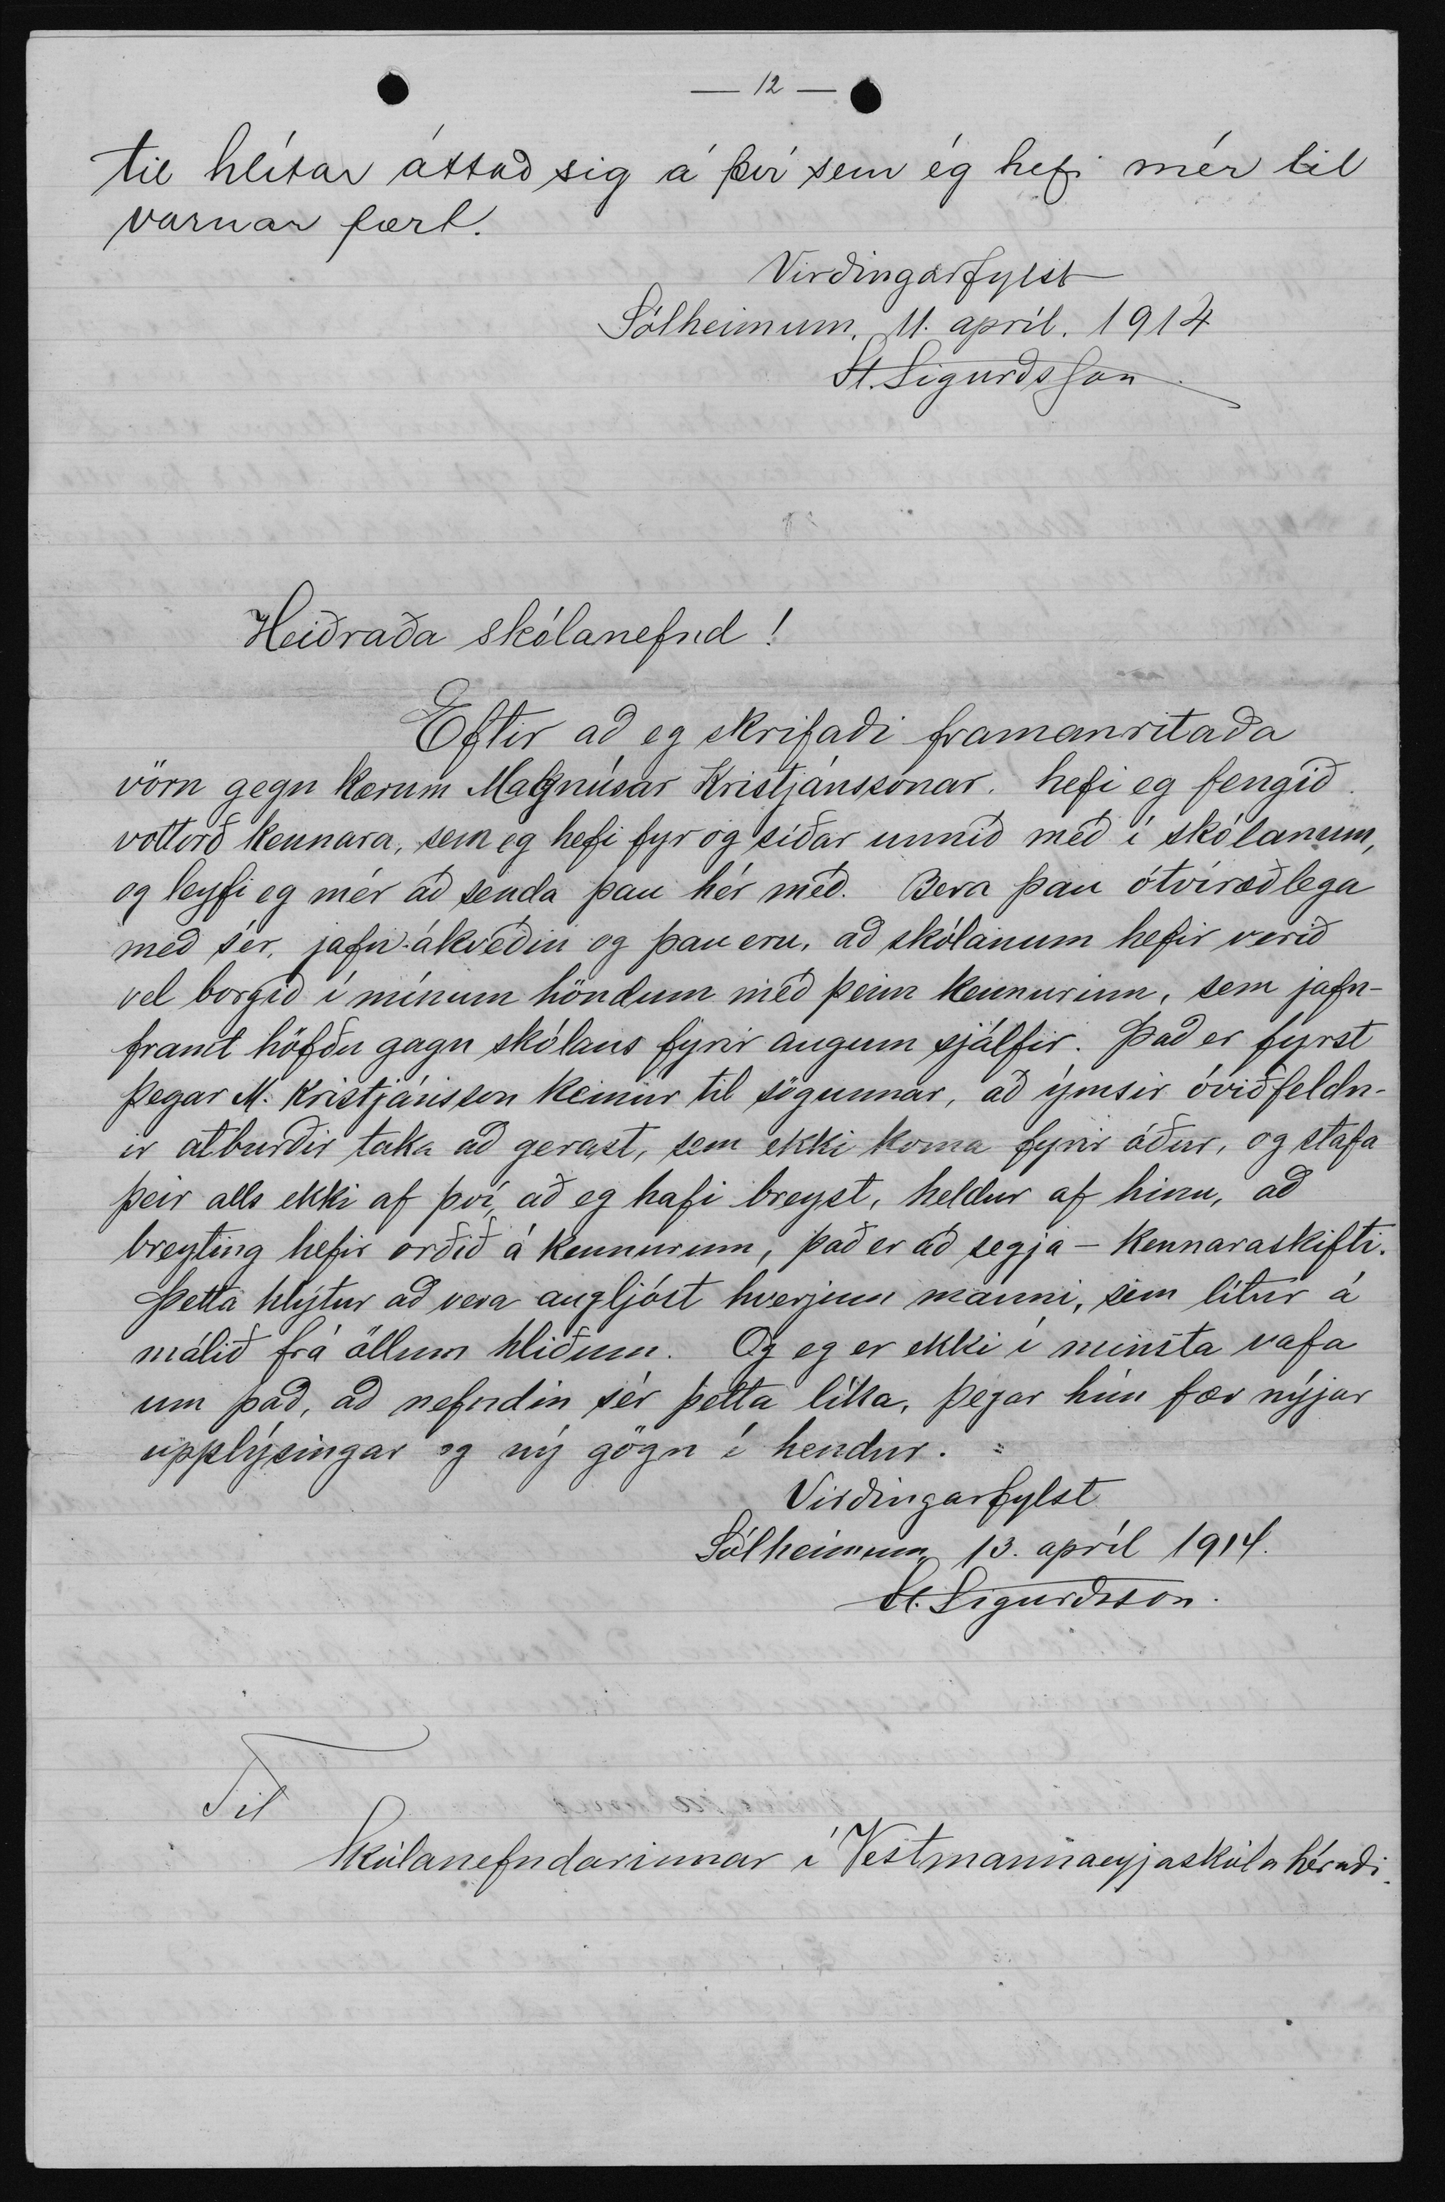 — 12 —
til hlítar áttað sig á því sem ég hefi mér til
varnar fært.
Virðingarfylst
Sólheimum, 11. apríl. 1914
St. Sigurðsson
Heiðraða skólanefnd!
Eftir að eg skrifaði framanritaða
vörn gegn kærum Magnúsar Kristjánssonar. hefi eg fengið
vottorð kennara, sem eg hefi fyr og síðar unnið með í skólanum,
og leyfi eg mér að senda þau hér með. Bera þau ótvíræðlega
með sér, jafn ákveðin og þau eru, að skólanum hefir verið
vel borgið í mínum höndum með þeim kennurum, sem jafn-
framt höfðu gagn skólans fyrir augum sjálfir. Það er fyrst
þegar M. Kristjánsson kemur til sögunnar, að ýmsir óviðfeldn-
ir atburðir taka að gerast, sem ekki koma fyrir áður, og stafa
þeir alls ekki af því, að eg hafi breyst, heldur af hinu, að
breyting hefir orðið á kennurum, það er að segja – kennaraskifti.
Þetta hlýtur að vera augljóst hverjum manni, sem lítur á
málið frá öllum hliðum. Og eg er ekki í minsta vafa
um það, að nefndin sér þetta líka, þegar hún fær nýjar
upplýsingar og ný gögn í hendur.
Virðingarfylst
Sólheimum, 13. apríl 1914.
St. Sigurðsson.
Til
Skólanefndarinnar í Vestmannaeyjaskólahéraði.